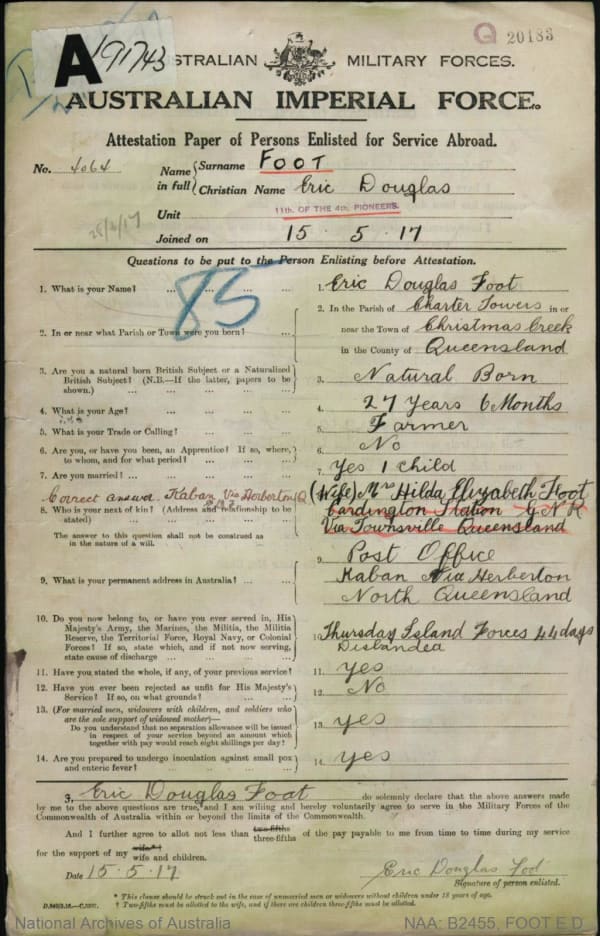 A 191743
Q 20183
AUSTRALIAN MILITARY FORCES.
AUSTRALIAN IMPERIAL FORCE.
Attestation Paper of Persons Enlisted for Service Abroad.
No. 4064
Name in full { Surname FOOT
Christian Name Eric Douglas
Unit 11th. OF THE 4th. PIONEERS.
Joined on 15.5.17
Questions to be put to the Person Enlisting before Attestation.
85
1. What is your Name? ... ... ... ... 1. Eric Douglas Foot
2. In or near what Parish or Town were you born? ... 2. In the Parish of Charter Towers in or
near the Town of Christmas Creek
in the County of Queensland
3. Are you a natural born British Subject or a Naturalized
British Subject? (N.B.—If the latter, papers to be
shown.) ... ... ... ... 3. Natural Born
4. What is your Age? ... ... ... ... 4. 27 Years 6 Months
5. What is your Trade or Calling? ... ... ... 5. Farmer
6. Are you, or have you been, an Apprentice? If so, where,
to whom, and for what period? ... ... 6. No
7. Are you married? ... ... ... 7. Yes 1 child
Correct answer. Kaban Via Herberton Q
8. Who is your next of kin? (Address and relationship to be
stated) ... ... ... ...
(Wife) Mrs Hilda Elizabeth Foot
Cardington Station G N R
Via Townsville Queensland
The answer to this question shall not be construed as
in the nature of a will.
9. What is your permanent address in Australia? ... ... 9. Post Office
Kaban Via Herberton
North Queensland
10. Do you now belong to, or have you ever served in, His
Majesty's Army, the Marines, the Militia, the Militia
Reserve, the Territorial Force, Royal Navy, or Colonial
Forces? If so, state which, and if not now serving,
state cause of discharge ... ... ... 10. Thursday Island Forces 44 days
Disbanded
11. Have you stated the whole, if any, of your previous service? 11. Yes
12. Have you ever been rejected as unfit for His Majesty's
Service? If so, on what grounds? ... ... 12. No
13. (For married men, widowers with children, and soldiers who
are the sole support of widowed mother)—
Do you understand that no separation allowance will be issued
in respect of your service beyond an amount which
together with pay would reach eight shillings per day? 13. yes
14. Are you prepared to undergo inoculation against small pox
and enteric fever? ... ... ... ... 14. yes
I, Eric Douglas Foot do solemnly declare that the above answers made
by me to the above questions are true, and I am willing and hereby voluntarily agree to serve in the Military Forces of the
Commonwealth of Australia within or beyond the limits of the Commonwealth.
And I further agree to allot not less than two-fifths three-fifths of the pay payable to me from time to time during my service
for the support of my wife* wife and children.
Date 15.5.17
Eric Douglas Foot
Signature of person enlisted.
* This clause should be struck out in the case of unmarried men or widowers without children under 18 years of age.
† Two-fifths must be allotted to the wife, and if there are children three-fifths must be allotted.
National Archives of Australia
NAA: B2455, FOOT E D